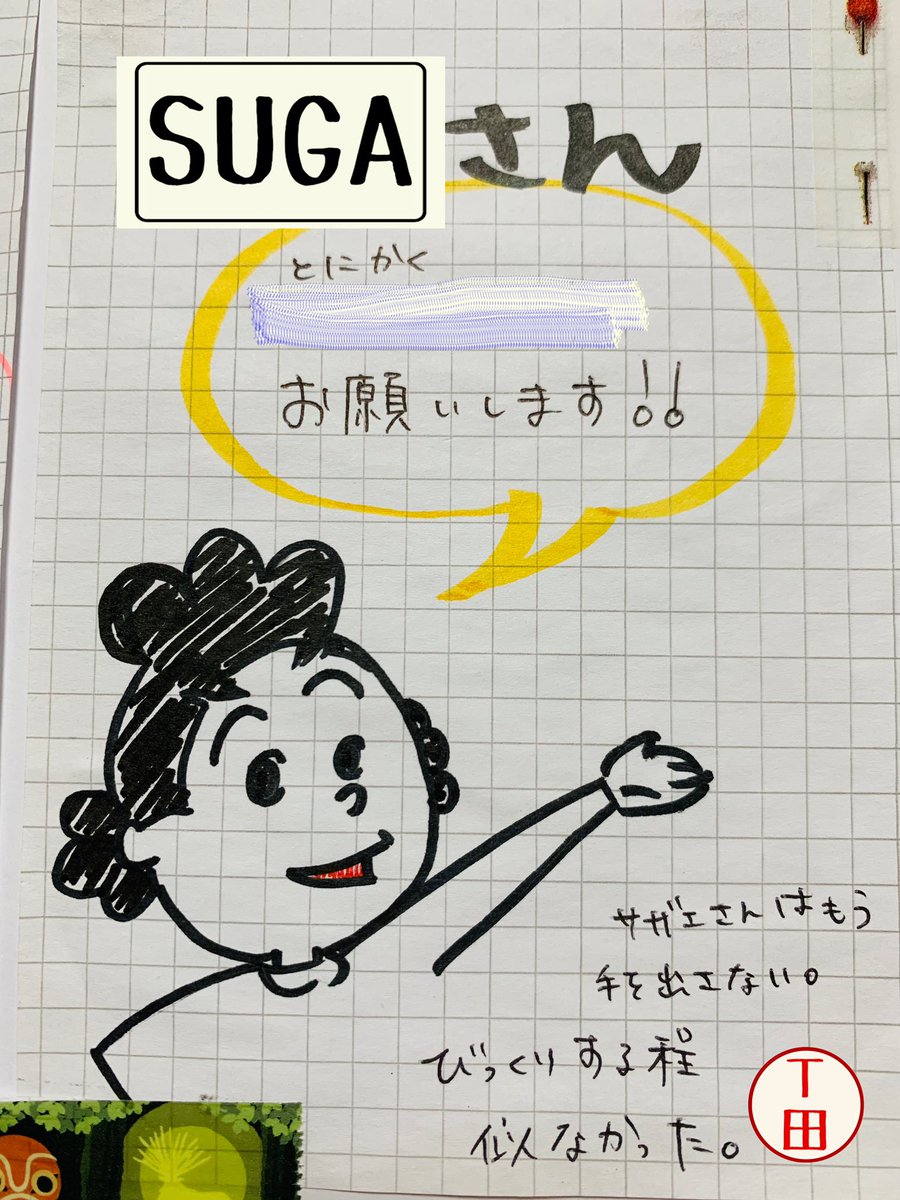 SUGAさん
とにかく
お願いします!!
サザエさんはもう
手を出さない。
びっくりする程
似なかった。
T田